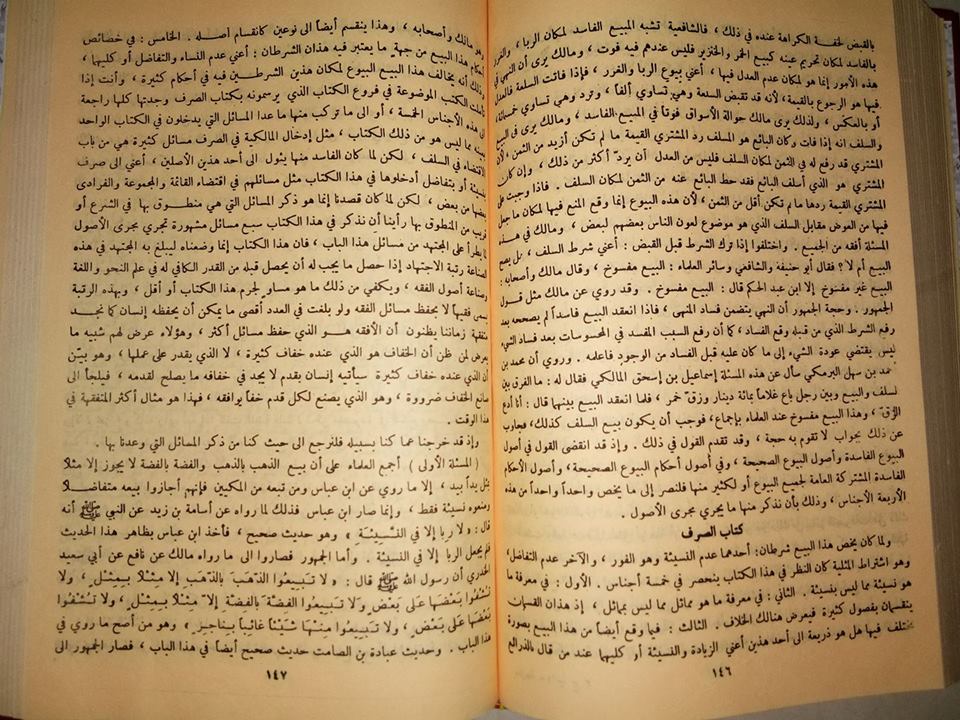 بالقبض لخفة الكراهة عنده في ذلك ، فالشافعية تشبه المبيع الفاسد لمكان الربا ، والغرر
بالفاسد لمكان تحريم عينه كبيع الخمر والخنزير فليس عندهم فيه فوت ، ومالك يرى أن النهي في
هذه الأمور إنما هو لمكان عدم العدل فيها ، أعني بيوع الربا والغرر ، فإذا فاتت السلعة فالعدل
فيها هو الرجوع بالقيمة، لأنه قد تقبض السلعة وهي تساوي ألفاً ، وترد وهي تساوي خمسمائة
أو بالعكس ، ولذلك يرى مالك حوالة الأسواق فوتاً في المبيع الفاسد ، ومالك يرى في البيع
والسلف انه إذا فات وكان البائع هو المسلف رد المشتري القيمة ما لم تكن أزيد من الثمن ، لأن
المشتري قد رفع له في الثمن لمكان السلف فليس من العدل أن يردّ أكثر من ذلك ، وإن كان
المشتري هو الذي أسلف البائع فقد حط البائع عنه من الثمن لمكان السلف ، فاذا وجبت على
المشتري القيمة ردها ما لم تكن أقل من الثمن ، لأن هذه البيوع إنما وقع المنع فيها لمكان ما جعل
فيها من العوض مقابل السلف الذي هو موضوع لعون الناس بعضهم لبعض ، ومالك في هذه
المسئلة أفقه من الجميع . واختلفوا إذا ترك الشرط قبل القبض : أعني شرط السلف ، هل يصح
البيع أم لا ؟ فقال أبو حنيفة والشافعي وسائر العلماء : البيع مفسوخ ، وقال مالك وأصحابه :
البيع غير مفسوخ إلا ابن عبد الحكم قال : البيع مفسوخ . وقد روي عن مالك مثل قول
الجمهور . وحجة الجمهور أن النهي يتضمن فساد المنهى ، فاذا انعقد البيع فاسداً لم يصححه بعد
رفع الشرط الذي من قبله وقع الفساد ، كما أن رفع السبب المفسد في المحسوسات بعد فساد الشيء
ليس يقتضي عودة الشيء إلى ما كان عليه قبل الفساد من الوجود فاعلمه . وروي أن محمد بن
أحمد بن سهل البرمكي سأل عن هذه المسئلة إسماعيل بن إسحق المالكي فقال له : ما الفرق بين
السلف والبيع وبين رجل باع غلاماً بمائة دينار وزق خمر ، فلما انعقد البيع بينهما قال : أنا أدع
الزق ، وهذا البيع مفسوخ عند العلماء بإجماع، فوجب أن يكون بيع السلف كذلك، فجاوب
عن ذلك بجواب لا تقوم به حجة ، وقد تقدم القول في ذلك . وإذ قد انقضى القول في أصول
البيوع الفاسدة وأصول البيوع الصحيحة ، وفي أصول أحكام البيوع الصحيحة ، وأصول الأحكام
الفاسدة المشتركة العامة لجميع البيوع أو لكثير منها فلنصر إلى ما يخص واحداً واحداً من هذه
الأربعة الأجناس ، وذلك بأن نذكر منها ما يجري مجرى الأصول .
كتاب الصرف
ولما كان يخص هذا البيع شرطان: أحدهما عدم النسيئة وهو الفور ، والآخر عدم التفاضل،
وهو اشتراط المثلية كان النظر في هذا الكتاب ينحصر في خمسة أجناس . الأول : في معرفة ما
هو نسيئة مما ليس بنسيئة . الثاني : في معرفة ما هو مماثل مما ليس بمماثل ، إذ هذان القسمان
ينقسمان بفصول كثيرة فيعرض هنالك الخلاف. الثالث : فيما وقع أيضاً من هذا البيع بصورة
مختلف فيها هل هو ذريعة الى أحد هذين أعني الزيادة والنسيئة أو كليهما عند من قال بالذرائع
١٤٦
وهو مالك وأصحابه ، وهذا ينقسم أيضاً الى نوعين كانقسام أصله . الخامس : في خصائص
أحكام هذا البيع من جهة ما يعتبر فيه هذان الشرطان : أعني عدم النساء والتفاضل أو كليهما ،
وذلك أنه يخالف هذا البيع البيوع لمكان هذين الشرطين فيه في أحكام كثيرة ، وأنت إذا
تأملت الكتب الموضوعة في فروع الكتاب الذي يرسمونه بكتاب الصرف وجدتها كلها راجعة
الى هذه الأجناس الخمسة ، أو الى ما تركب منها ما عدا المسائل التي يدخلون في الكتاب الواحد
بعينه مما ليس هو من ذلك الكتاب ، مثل إدخال المالكية في الصرف مسائل كثيرة هي من باب
الاقتضاء في السلف ، لكن لما كان الفاسد منها يئول الى أحد هذين الأصلين ، أعني الى صرف
بنسيئة أو بتفاضل أدخلوها في هذا الكتاب مثل مسائلهم في اقتضاء القائمة والمجموعة والفرادى
بعضها من بعض ، لكن لما كان قصدنا إنما هو ذكر المسائل التي هي منطوق بها في الشرع أو
قريب من المنطوق بها رأينا أن نذكر في هذا الكتاب سبع مسائل مشهورة تجري مجرى الأصول
لما يطرأ على المجتهد من مسائل هذا الباب ، فان هذا الكتاب إنما وضعناه ليبلغ به المجتهد في هذه
الصناعة رتبة الاجتهاد إذا حصل ما يجب له أن يحصل قبله من القدر الكافي له في علم النحو واللغة
وصناعة أصول الفقه ، ويكفي من ذلك ما هو مساو لجرم هذا الكتاب أو أقل ، وبهذه الرتبة
يسمى فقيهاً لا بحفظ مسائل الفقه ولو بلغت في العدد أقصى ما يمكن أن يحفظه إنسان كما نجد
متفقهة زماننا يظنون أن الأفقه هو الذي حفظ مسائل أكثر ، وهؤلاء عرض لهم شبيه ما
يعرض لمن ظن أن الخفاف هو الذي عنده خفاف كثيرة ، لا الذي يقدر على عملها ، وهو بيّن
أن الذي عنده خفاف كثيرة سيأتيه إنسان بقدم لا يجد في خفافه ما يصلح لقدمه ، فيلجأ الى
صانع الخفاف ضرورة ، وهو الذي يصنع لكل قدم خفاً يوافقه ، فهذا هو مثال أكثر المتفقهة في
هذا الوقت .
وإذ قد خرجنا عما كنا بسبيله فلنرجع الى حيث كنا من ذكر المسائل التي وعدنا بها .
( المسئلة الأولى ) أجمع العلماء على أن بيع الذهب بالذهب والفضة بالفضة لا يجوز إلا مثلا
بمثل يداً بيد ، إلا ما روي عن ابن عباس ومن تبعه من المكيين فإنهم أجازوا بيعه متفاضلاً
ومنعوه نسيئة فقط ، وإنما صار ابن عباس لذلك لما رواه عن أسامة بن زيد عن النبي ﷺ أنه
قال : « لا ربا إلا في النَّسيئَة » وهو حديث صحيح ، فأخذ ابن عباس بظاهر هذا الحديث
فلم يجعل الربا إلا في النسيئة . وأما الجمهور فصاروا الى ما رواه مالك عن نافع عن أبي سعيد
الخدري أن رسول الله ﷺ قال : « لا تَبيعُوا الذَّهَبَ بالذَّهَب إلا مِثْلاً بِمِثْلٍ ، ولا
تُشفُّوا بَعْضَها عَلى بَعْضٍ وَلا تَبيعُوا الفِضَّة بالفِضَّة إلاّ مِثْلاً بِمِثْلٍ ، وَلا تُشفُّوا
بَعْضَها عَلى بَعْضٍ ، ولا تَبيعُوا مِنْها شَيْئاً غائِباً بِناجِزٍ » وهو من أصح ما روي في
هذا الباب . وحديث عبادة بن الصامت حديث صحيح أيضاً في هذا الباب ، فصار الجمهور الى
١٤٧